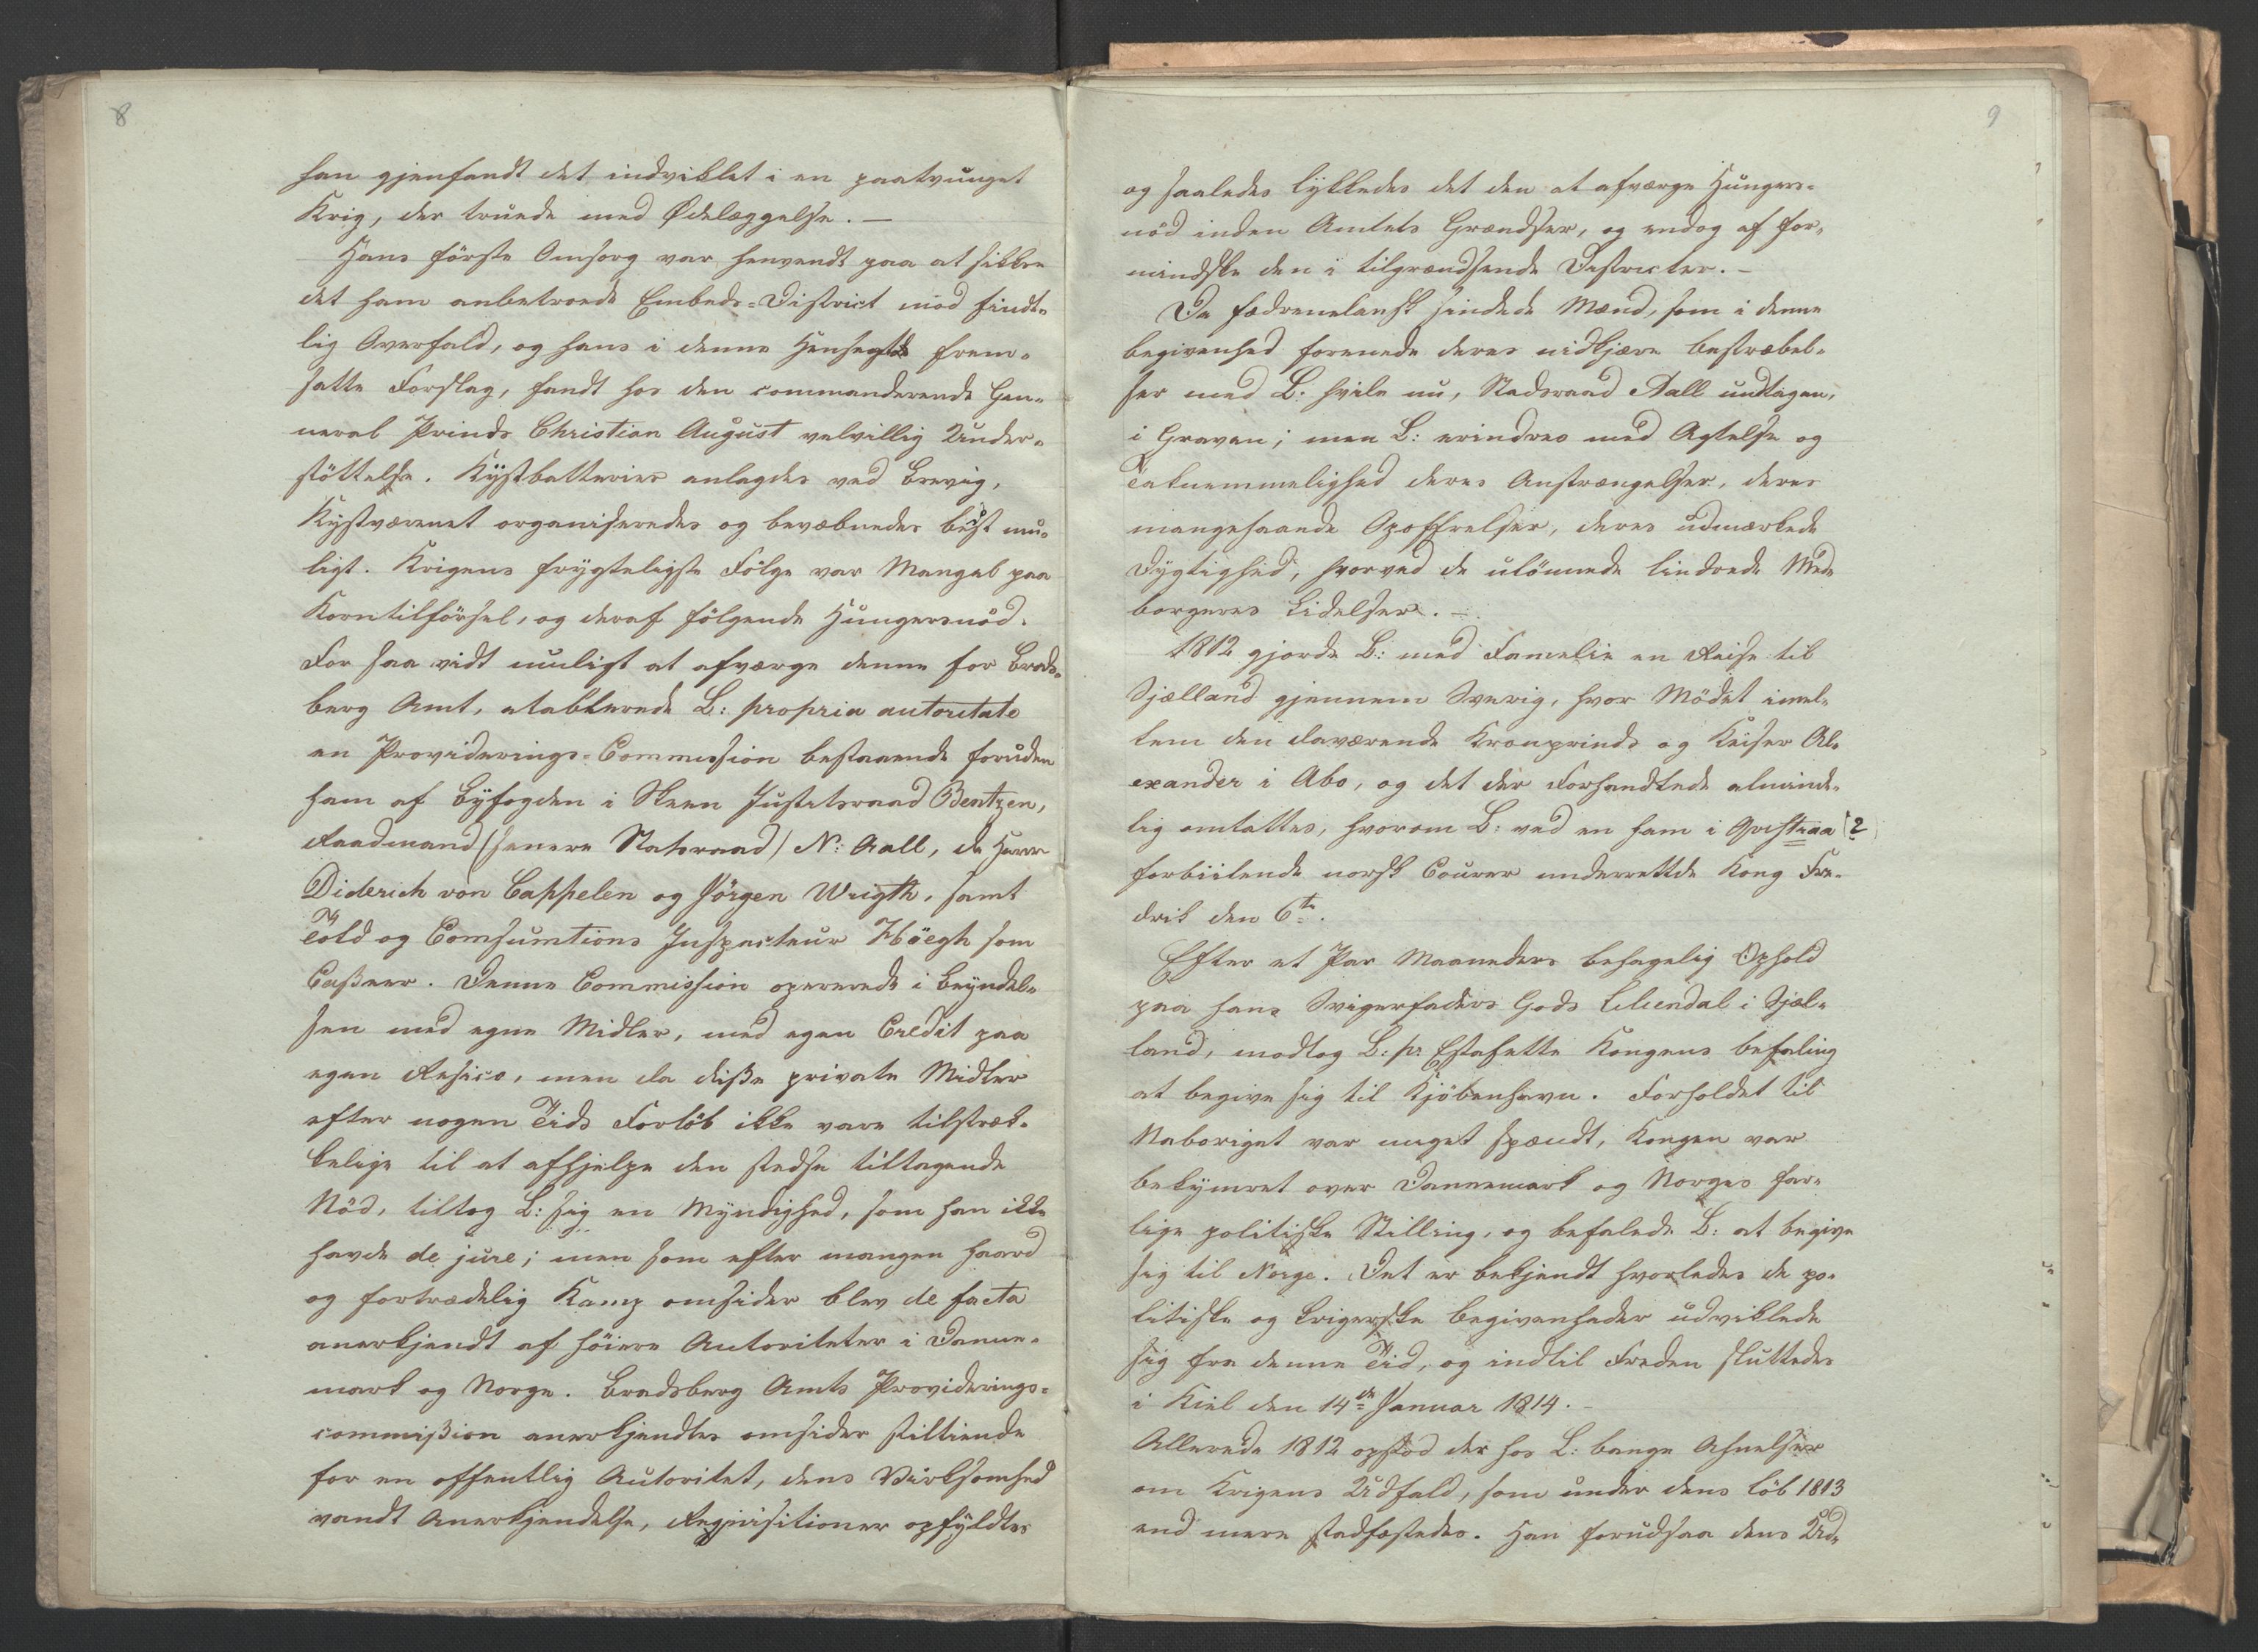 8
han gjenfandt det indviklet i en paatvunget
Krig, der truede med Ødelæggelse. —
Hans første Omsorg var henvendt paa at sikkre
det ham anbetroede Embeds-District mod findt-
lig Overfald, og hans i denne Hensegt frem-
satte Forslag, fandt hos den commanderende Gen-
neral Prinds Christian August velvillig Under-
støttelse. Kystbatterier anlagdes ved Brevig,
Kystværnet organiseredes og bevæbnedes best mu-
ligt. Krigens frygteligste Følge var Mangel paa
Korntilførsel, og deraf følgende Hungersnød.
For saa vidt muligt at afværge denne for Brads-
berg Amt, etablerede L: propria autoritate
en Providerings-Commission bestaaende foruden
ham af Byfogden i Skeen Justitsraad Bentzen,
Raadmand (senere Statsraad) N: Aall, de Herrer
Diderich von Cappelen og Jörgen Wrigth, samt
Told og Comsumtions Inspecteur Höegh som
Casseer. Denne Commission opererede i Beyndel-
sen med egne Midler, med egen Credit paa
egen Resico, men da disse private Midler
efter nogen Tids Forløb ikke vare tilstræk-
kelige til at afhjelpe den stedse tiltagende
Nöd, tiltog L: sig en Myndighed, som han ikke
havde de jure; men som efter mangen haard
og fortrædelig Kamp omsider blev de facta
anerkjendt af höiere Autoriteter i Danne-
mark og Norge. Bradsberg Amts Providerings-
commission anerkjendtes omsider stiltiende
for en offentlig Autoritet, dens Virksomhed
vandt Anerkjendelse, Reqvisitioner opfyldtes
9
og saaledes lykkedes det den at afværge Hungers-
nød inden Amtets Grændser, og endog at for-
mindske den i tilgrændsende Districter. —
De fædrenelansk sindede Mænd, som i denne
begivenhed forenede deres nidkjære bestræbel-
ser med L: hvile nu, Stadsraad Aall undtagen,
i Graven; men L: erindres med Agtelse og
Taknemmelighed deres Anstrængelser, deres
mangehaande Opoffrelser, deres udmærkede
Dygtighed, hvorved de ulönnede lindrede Med-
borgeres Lidelser. —
1812 gjorde L: med Famelie en Reise til
Sjælland gjennem Sverig, hvor Mödet imel-
lem den daværende Kronprinds og Keiser Al-
exander i Abo, og det der Forhandlede almind-
lig omtaltes, hvorom L: ved en ham i Qvistraa [?]
forbiilende norsk Courer underrettede Kong Fre-
drik den 6te.
Efter et Par Maaneders behagelig Ophold
paa hans Svigerfaders Gods Liliendal i Sjæl-
land, modtog L: pr Estafette Kongens befaling
at begive sig til Kjöbenhavn. Forholdet til
Naboriget var meget spændt, Kongen var
bekymret over Dannemark og Norges far-
lige politiske Stilling, og befalede L: at begive
sig til Norge. Det er bekjendt hvorledes de po-
litiske og krigerske begivenheder udviklede
sig fra denne Tid, og indtil Freden sluttedes
i Kiel den 14de Januar 1814. —
Allerede 1812 opstod der hos L: bange Ahnelser
om Krigens Udfald, som under dens löb 1813
end mere stadfæstedes. Han forudsaa dens Ud-